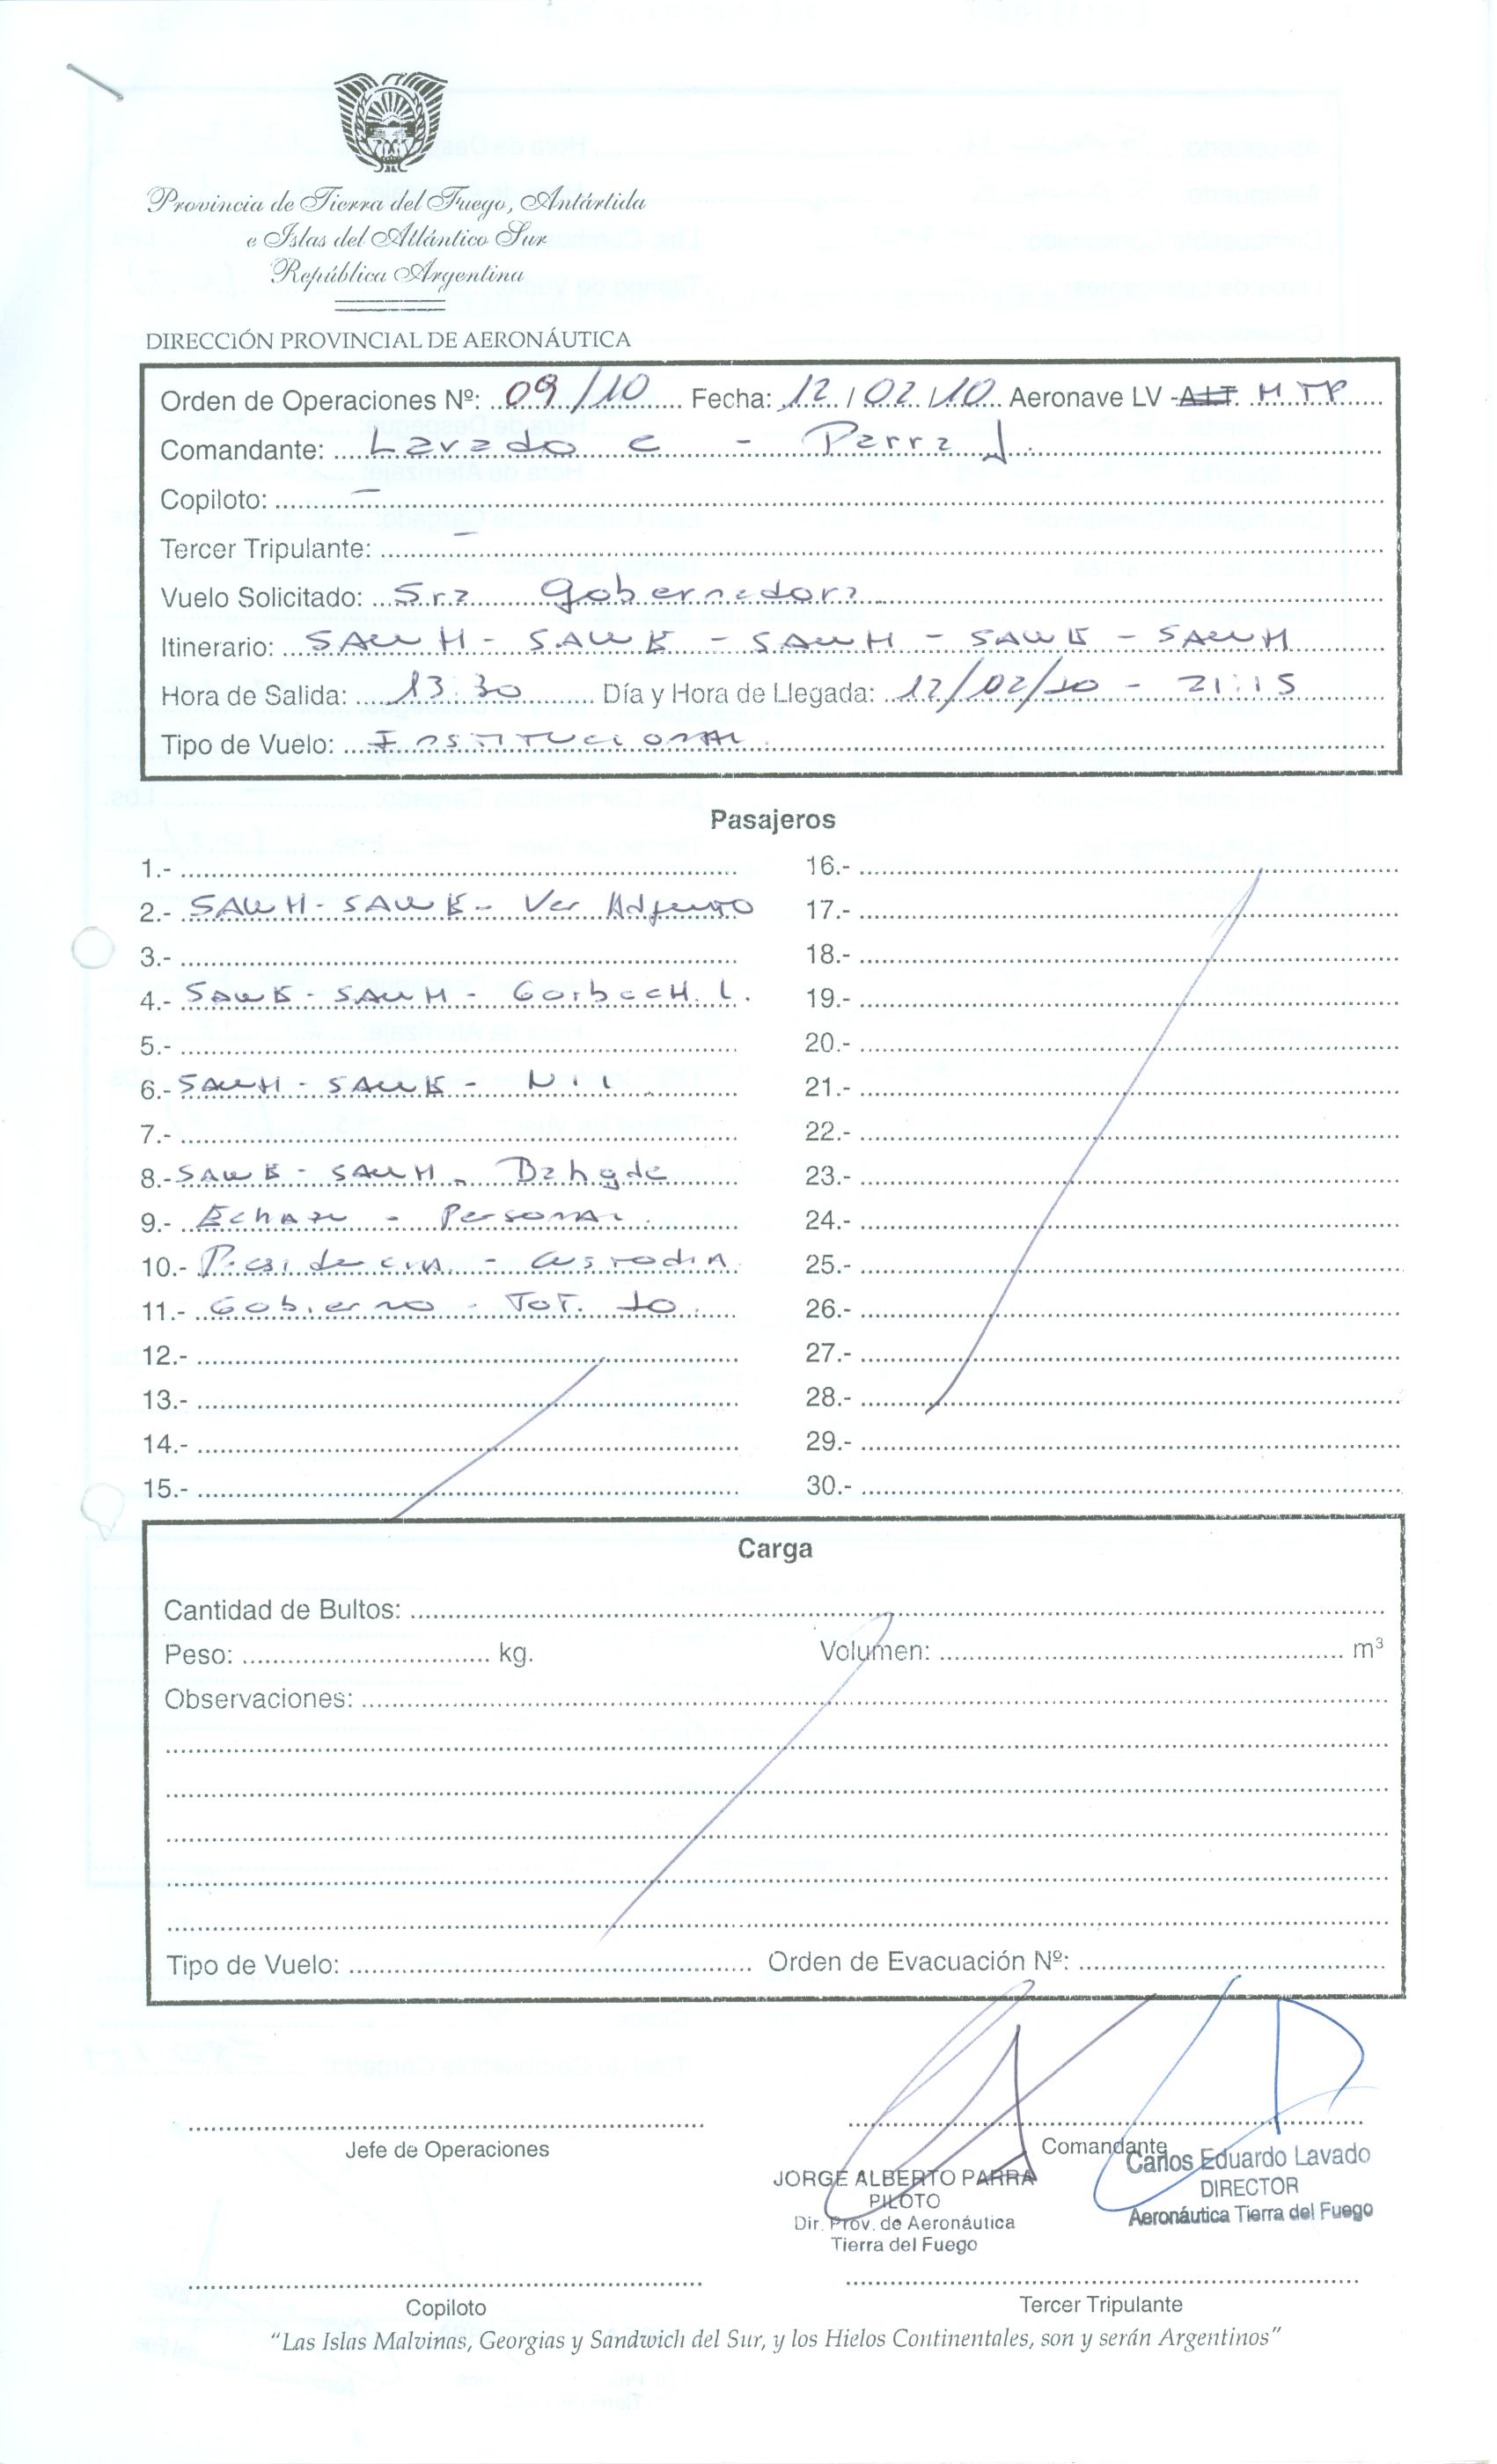 Provincia de Tierra del Fuego, Antártida
e Islas del Atlántico Sur
República Argentina
DIRECCIÓN PROVINCIAL DE AERONÁUTICA
Orden de Operaciones Nº: 09/10 Fecha: 12 / 02 / 10 Aeronave LV - AIT MTP
Comandante: Lavado C - Parra J.
Copiloto: -
Tercer Tripulante: -
Vuelo Solicitado: Sra Gobernadora
Itinerario: SAWH - SAWE - SAWH - SAWE - SAWH
Hora de Salida: 13:30 Día y Hora de Llegada: 12/02/10 - 21:15
Tipo de Vuelo: Institucional
Pasajeros
1.-
2.- SAWH - SAWE - Ver Adjunto
3.-
4.- SAWE - SAWH - Gorbacz L.
5.-
6.- SAWH - SAWE - Nil
7.-
8.- SAWE - SAWH - Bahgde
9.- - Personal
10.- Presidencia - Custodia
11.- Gobierno - Tot. 10.
12.-
13.-
14.-
15.-
16.-
17.-
18.-
19.-
20.-
21.-
22.-
23.-
24.-
25.-
26.-
27.-
28.-
29.-
30.-
Carga
Cantidad de Bultos:
Peso: kg. Volumen: m³
Observaciones:
Tipo de Vuelo: Orden de Evacuación Nº:
Jefe de Operaciones
Comandante
JORGE ALBERTO PARRA
PILOTO
Dir. Prov. de Aeronáutica
Tierra del Fuego
Carlos Eduardo Lavado
DIRECTOR
Aeronáutica Tierra del Fuego
Copiloto
Tercer Tripulante
"Las Islas Malvinas, Georgias y Sandwich del Sur, y los Hielos Continentales, son y serán Argentinos"